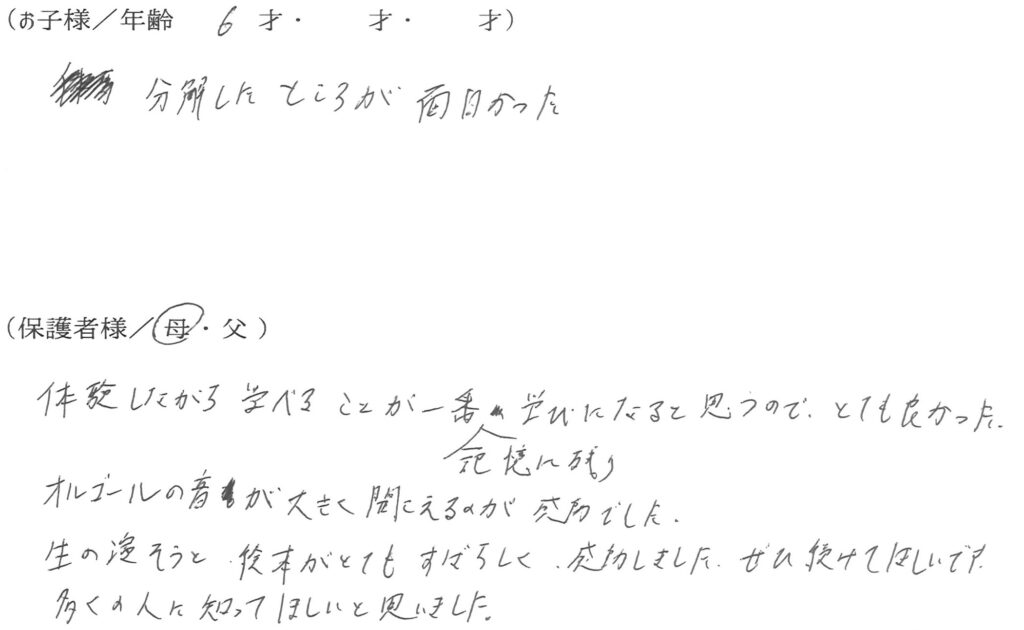 (お子様／年齢　6 才・　　才・　　才)
分解したところが 面白かった
(保護者様／母・父 )
体験しながら 学べる ことが一番 学びになると思うので、とても良かった。
記憶に残り
オルゴールの音が大きく聞こえるのが 感動でした。
生の演そうと、絵本がとても すばらしく、感動しました。ぜひ 続けてほしいです。
多くの人に知ってほしいと思いました。